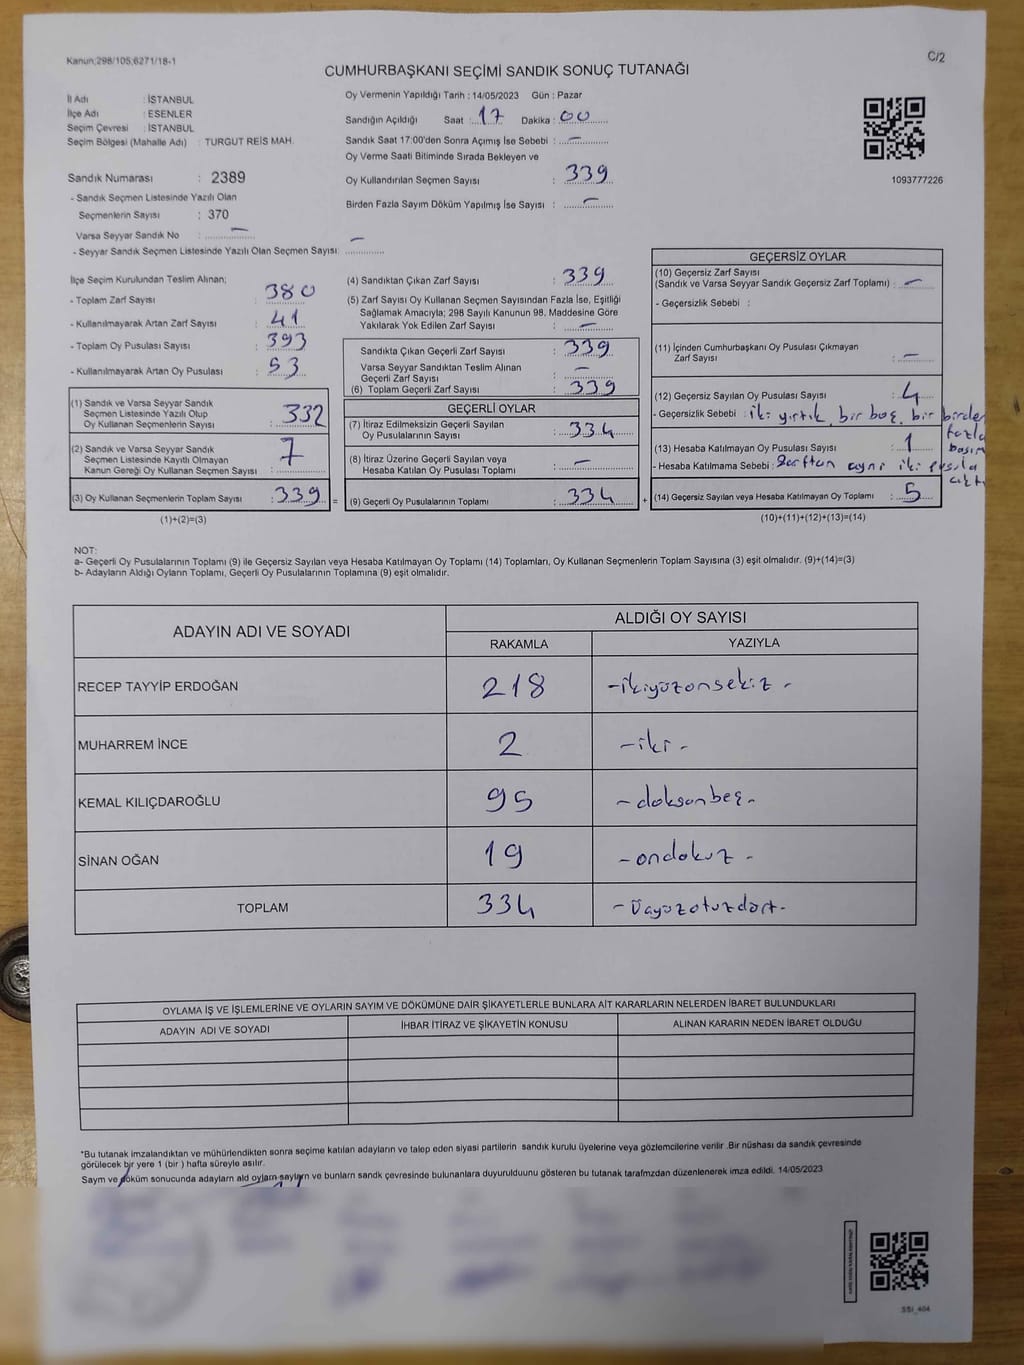 Kanun;298/105,6271/18-1
C/2
CUMHURBAŞKANI SEÇİMİ SANDIK SONUÇ TUTANAĞI
İl Adı : İSTANBUL
İlçe Adı : ESENLER
Seçim Çevresi : İSTANBUL
Seçim Bölgesi (Mahalle Adı) : TURGUT REİS MAH.
Sandık Numarası : 2389
- Sandık Seçmen Listesinde Yazılı Olan
Seçmenlerin Sayısı : 370
Varsa Seyyar Sandık No : –
- Seyyar Sandık Seçmen Listesinde Yazılı Olan Seçmen Sayısı: –
Oy Vermenin Yapıldığı Tarih : 14/05/2023 Gün : Pazar
Sandığın Açıldığı Saat : 17 Dakika : 00
Sandık Saat 17:00'den Sonra Açımış İse Sebebi : –
Oy Verme Saati Bitiminde Sırada Bekleyen ve
Oy Kullandırılan Seçmen Sayısı : 339
Birden Fazla Sayım Döküm Yapılmış İse Sayısı : –
1093777226
İlçe Seçim Kurulundan Teslim Alınan;
- Toplam Zarf Sayısı : 380
- Kullanılmayarak Artan Zarf Sayısı : 41
- Toplam Oy Pusulası Sayısı : 393
- Kullanılmayarak Artan Oy Pusulası : 53
(1) Sandık ve Varsa Seyyar Sandık
Seçmen Listesinde Yazılı Olup
Oy Kullanan Seçmenlerin Sayısı : 332
(2) Sandık ve Varsa Seyyar Sandık
Seçmen Listesinde Kayıtlı Olmayan
Kanun Gereği Oy Kullanan Seçmen Sayısı : 7
(3) Oy Kullanan Seçmenlerin Toplam Sayısı : 339 =
(1)+(2)=(3)
(4) Sandıktan Çıkan Zarf Sayısı : 339
(5) Zarf Sayısı Oy Kullanan Seçmen Sayısından Fazla İse, Eşitliği
Sağlamak Amacıyla; 298 Sayılı Kanunun 98. Maddesine Göre
Yakılarak Yok Edilen Zarf Sayısı : –
Sandıkta Çıkan Geçerli Zarf Sayısı : 339
Varsa Seyyar Sandıktan Teslim Alınan
Geçerli Zarf Sayısı : –
(6) Toplam Geçerli Zarf Sayısı : 339
GEÇERLİ OYLAR
(7) İtiraz Edilmeksizin Geçerli Sayılan
Oy Pusulalarının Sayısı : 334
(8) İtiraz Üzerine Geçerli Sayılan veya
Hesaba Katılan Oy Pusulası Toplamı : –
(9) Geçerli Oy Pusulalarının Toplamı : 334 +
GEÇERSİZ OYLAR
(10) Geçersiz Zarf Sayısı
(Sandık ve Varsa Seyyar Sandık Geçersiz Zarf Toplamı) : –
- Geçersizlik Sebebi :
(11) İçinden Cumhurbaşkanı Oy Pusulası Çıkmayan
Zarf Sayısı : –
(12) Geçersiz Sayılan Oy Pusulası Sayısı : 4
- Geçersizlik Sebebi : iki yırtık, bir boş, bir birden
fazla
basım
(13) Hesaba Katılmayan Oy Pusulası Sayısı : 1
- Hesaba Katılmama Sebebi : Zarftan aynı iki pusula
çıktı
(14) Geçersiz Sayılan veya Hesaba Katılmayan Oy Toplamı : 5
(10)+(11)+(12)+(13)=(14)
NOT:
a- Geçerli Oy Pusulalarının Toplamı (9) ile Geçersiz Sayılan veya Hesaba Katılmayan Oy Toplamı (14) Toplamları, Oy Kullanan Seçmenlerin Toplam Sayısına (3) eşit olmalıdır. (9)+(14)=(3)
b- Adayların Aldığı Oyların Toplamı, Geçerli Oy Pusulalarının Toplamına (9) eşit olmalıdır.
ADAYIN ADI VE SOYADI
ALDIĞI OY SAYISI
RAKAMLA YAZIYLA
RECEP TAYYİP ERDOĞAN 218 -ikiyüzonsekiz-
MUHARREM İNCE 2 -iki-
KEMAL KILIÇDAROĞLU 95 -doksanbeş-
SİNAN OĞAN 19 -ondokuz-
TOPLAM 334 -Üçyüzotuzdört-
OYLAMA İŞ VE İŞLEMLERİNE VE OYLARIN SAYIM VE DÖKÜMÜNE DAİR ŞİKAYETLERLE BUNLARA AİT KARARLARIN NELERDEN İBARET BULUNDUKLARI
ADAYIN ADI VE SOYADI İHBAR İTİRAZ VE ŞİKAYETİN KONUSU ALINAN KARARIN NEDEN İBARET OLDUĞU
*Bu tutanak imzalandıktan ve mühürlendikten sonra seçime katılan adayların ve talep eden siyasi partilerin sandık kurulu üyelerine veya gözlemcilerine verilir .Bir nüshası da sandık çevresinde
görülecek bir yere 1 (bir ) hafta süreyle asılır.
Saym ve döküm sonucunda adaylarn ald oylarn saylarn ve bunlarn sandk çevresinde bulunanlara duyurulduunu gösteren bu tutanak tarafmzdan düzenlenerek imza edildi. 14/05/2023